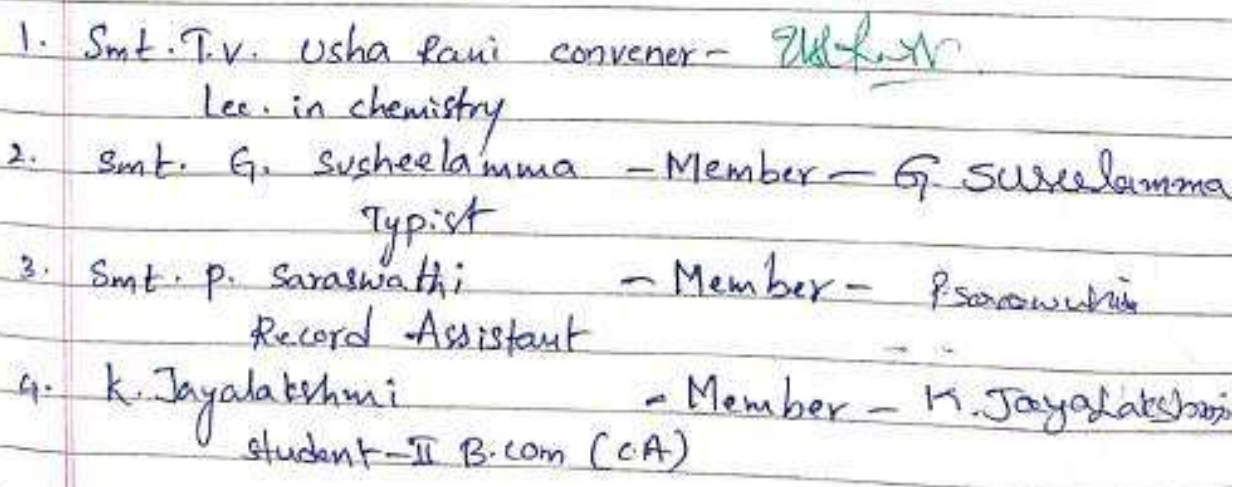 1. Smt. T.V. Usha Rani convener-
Lec. in chemistry
2. Smt. G. Susheelamma - Member - G. Suseelamma
Typist
3. Smt. P. Saraswathi - Member -
Record Assistant
4. K. Jayalakshmi - Member - K. Jayalakshmi
Student-II B.com (CA)